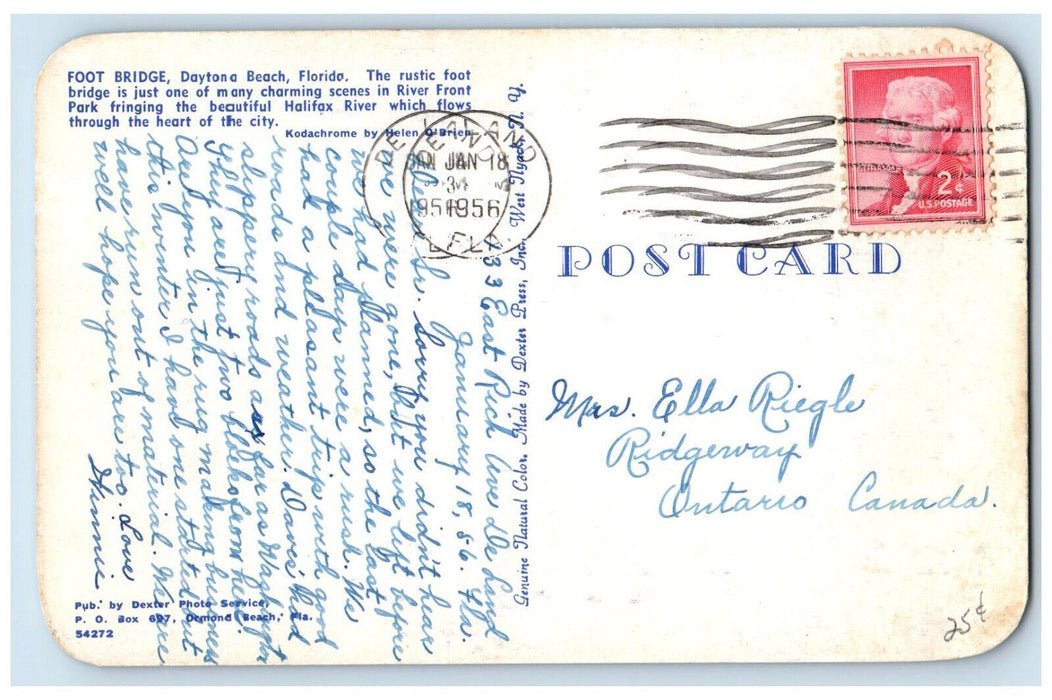 FOOT BRIDGE, Daytona Beach, Florida. The rustic foot
bridge is just one of many charming scenes in River Front
Park fringing the beautiful Halifax River which flows
through the heart of the city.
Kodachrome by Helen O'Brien
433 East Rich Ave De Land
January 18, 56. Fla.
Dear Sr. Sorry you didn't hear
we were gone, but we left before
we had planned, so the last
couple days were a rush. We
had a pleasant trip with good
roads and weather. Dave's had
slippery roads as far as Washington
They are just two blocks from here.
Are you in the rug making business
this winter I have one started but
have run out of material. We are
well hope you are too. Love
Winnie
Pub. by Dexter Photo Service,
P. O. Box 697, Ormond Beach, Fla.
54272
Genuine Natural Color, Made by Dexter Press, Inc., West Nyack, N. Y.
DE LAND
JAN 18
1956
FLA.
2¢
U.S. POSTAGE
POST CARD
Mrs. Ella Riegle
Ridgeway
Ontario Canada.
25¢